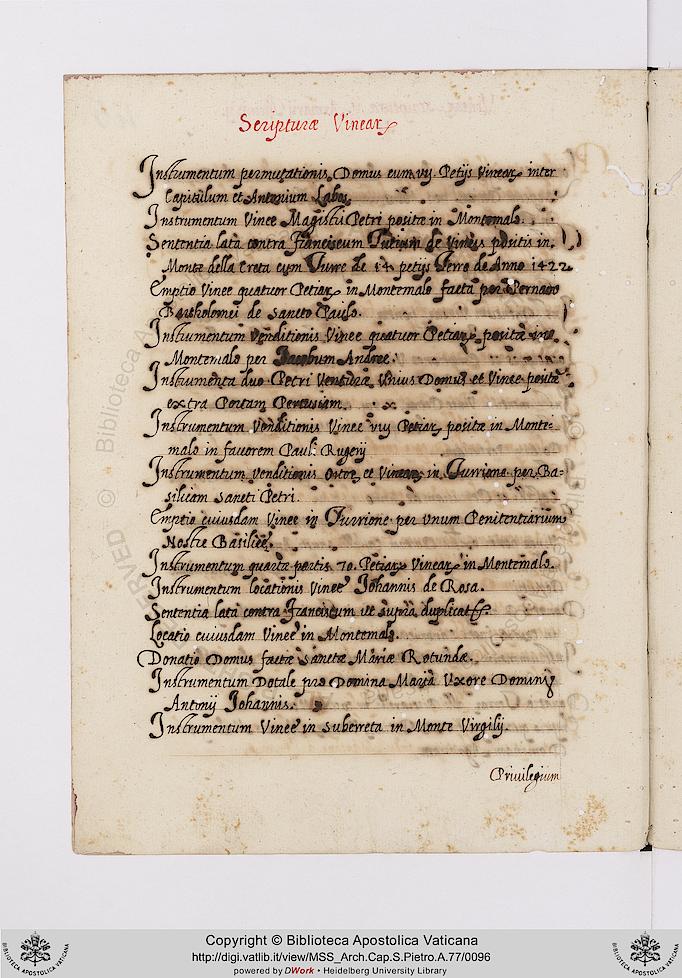 Scripturæ Vinear
Instrumentum permutationis Domus cum vij. Petijs Vinear inter
Capitulum et Antonium Labos
Instrumentum Vinee Magistri Petri positæ in Montemalo.
Sententia lata contra Franciscum de Vineis positis in
Monte della Creta cum Turre de 14 petijs Terre de Anno 1422
Emptio Vinee quatuor Petiar in Montemalo facta per
Bartholomei de Sancto Paulo.
Instrumentum Venditionis Vinee quatuor Petiar positæ in
Montemalo per Jacobum Andree.
Instrumenta duo Petri Venturæ Unius Domus et Vinee positæ
extra Portam Pertusiam.
Instrumentum Venditionis Vinee vij Petiar positæ in Monte=
malo in fauorem Pauli Rugerij
Instrumentum Venditionis Ortor et Vinear in Turrione per Ba=
silicam Sancti Petri.
Emptio cuiusdam Vinee in Turrione per Unum Penitentiarium
Nostre Basilice.
Instrumentum quartæ partis 70. Petiar Vinear in Montemalo.
Instrumentum locationis Vinee Johannis de Rosa.
Sententia lata contra Franciscum ut supra duplicat
Locatio cuiusdam Vinee in Montemalo.
Donatio Domus factæ Sanctæ Mariæ Rotundæ.
Instrumentum Dotale pro Domina Maria Uxore Domini
Antonij Johannis.
Instrumentum Vinee in Suberreta in Monte Virgilij.
Priuilegium
Copyright © Biblioteca Apostolica Vaticana
http://digi.vatlib.it/view/MSS_Arch.Cap.S.Pietro.A.77/0096
powered by DWork • Heidelberg University Library